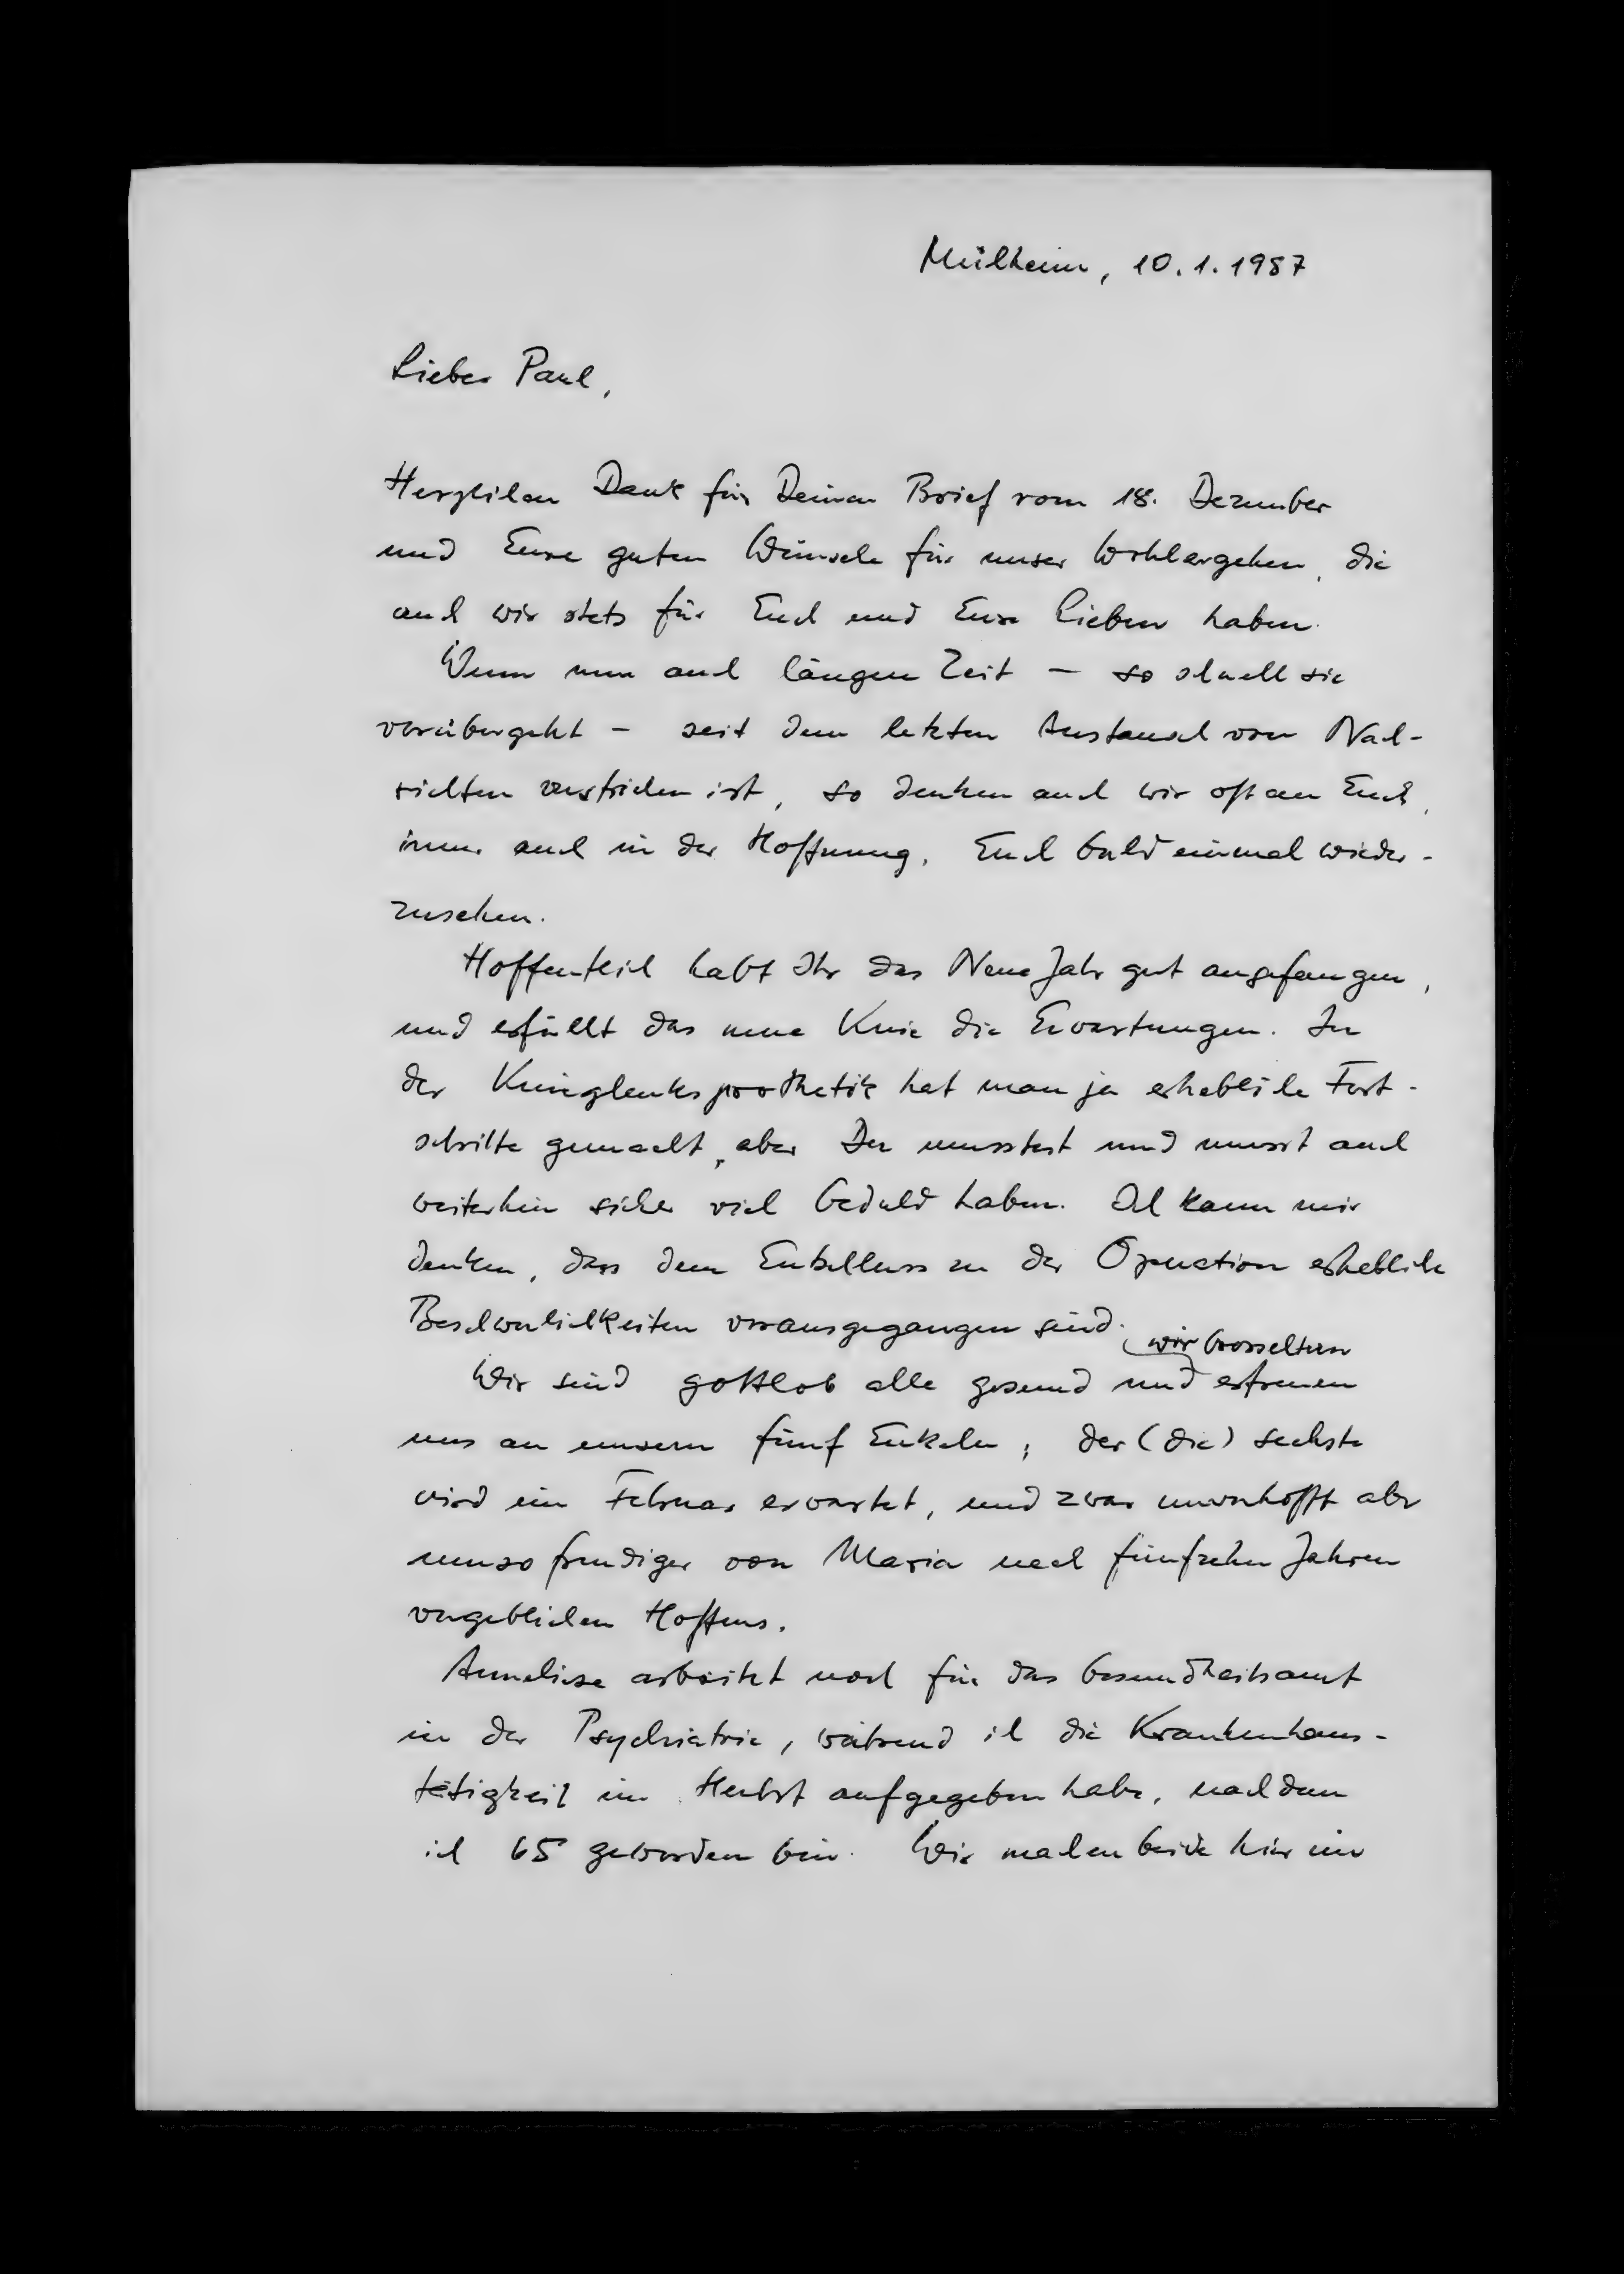 Mülheim, 10.1.1987
Lieber Paul,
Herzlichen Dank für Deinen Brief vom 18. Dezember
und Eure guten Wünsche für unser Wohlergehen, die
auch wir stets für Euch und Eure Lieben haben.
Wenn nun auch längere Zeit – so schnell sie
vorübergeht – seit dem letzten Austausch von Nach-
richten verstrichen ist, so denken auch wir oft an Euch,
immer auch in der Hoffnung, Euch bald einmal wieder-
zusehen.
Hoffentlich habt Ihr das Neue Jahr gut angefangen,
und erfüllt das neue Knie die Erwartungen. In
der Kniegelenksprothetik hat man ja erhebliche Fort-
schritte gemacht, aber Du musstest und musst auch
weiterhin sicher viel Geduld haben. Ich kann mir
denken, dass dem Entschluss zu der Operation erhebliche
Beschwerlichkeiten vorausgegangen sind.
wir Grosseltern
Wir sind gottlob alle gesund und erfreuen
uns an unsern fünf Enkeln; der (die) sechste
wird im Februar erwartet, und zwar unverhofft aber
umso freudiger von Maria nach fünfzehn Jahren
vergeblichen Hoffens.
Anneliese arbeitet noch für das Gesundheitsamt
in der Psychiatrie, während ich die Krankenhaus-
tätigkeit im Herbst aufgegeben habe, nachdem
ich 65 geworden bin. Wir machen beide hier im